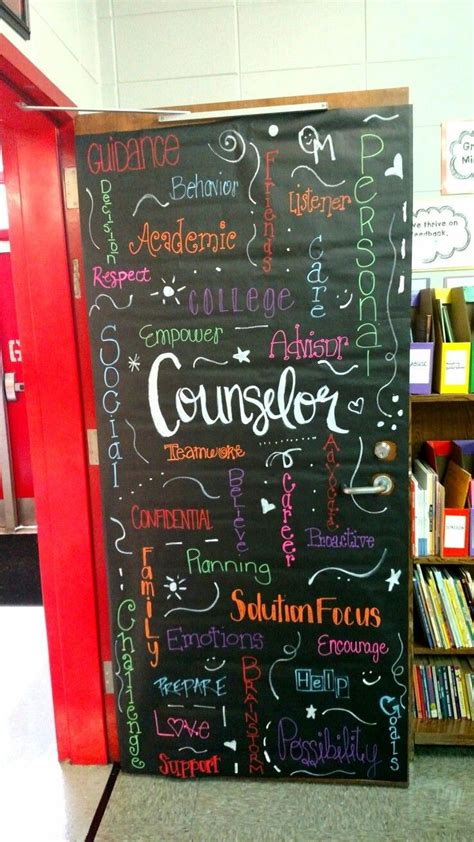 Guidance
Decision
Behavior
Friends
OM
Listener
Personal
Academic
Care
Respect
College
Empower
Advisor
Social
Counselor
Teamwork
Believe
Career
Advocate
Confidential
Proactive
Family
Planning
Solution Focus
Challenge
Emotions
Encourage
Prepare
Brainstorm
Help
Goals
Love
Possibility
Support
We thrive on
feedback.
G